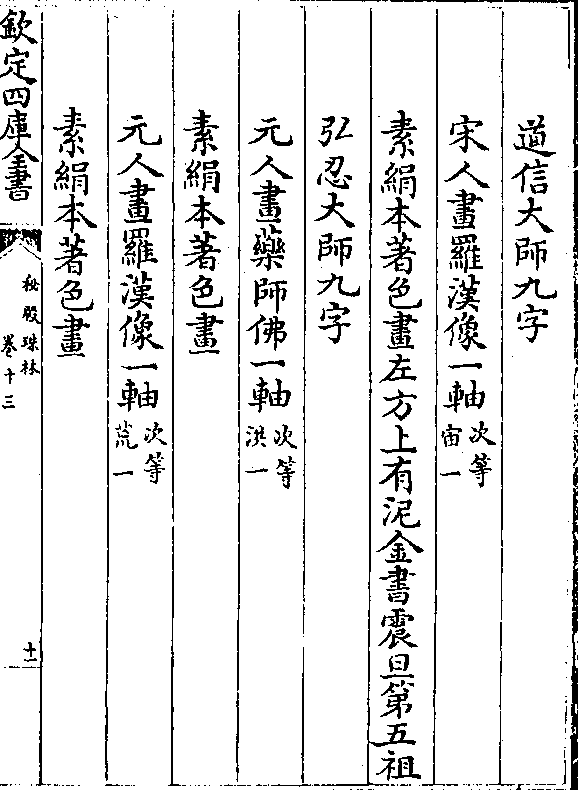 道信大師九字
宋人畫羅漢像一軸次等宙一
素絹本著色畫左方上有泥金書震旦第五祖
弘忍大師九字
元人畫藥師佛一軸次等洪一
素絹本著色畫
元人畫羅漢像一軸次等荒一
素絹本著色畫
欽定四庫全書
秘殿珠林
卷十三
十一